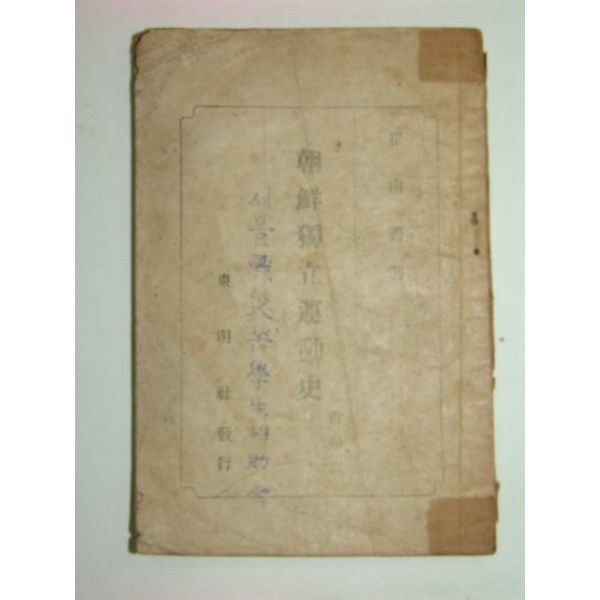 崔南善著
朝鮮獨立運動史
서울 學生補助會
東明社發行